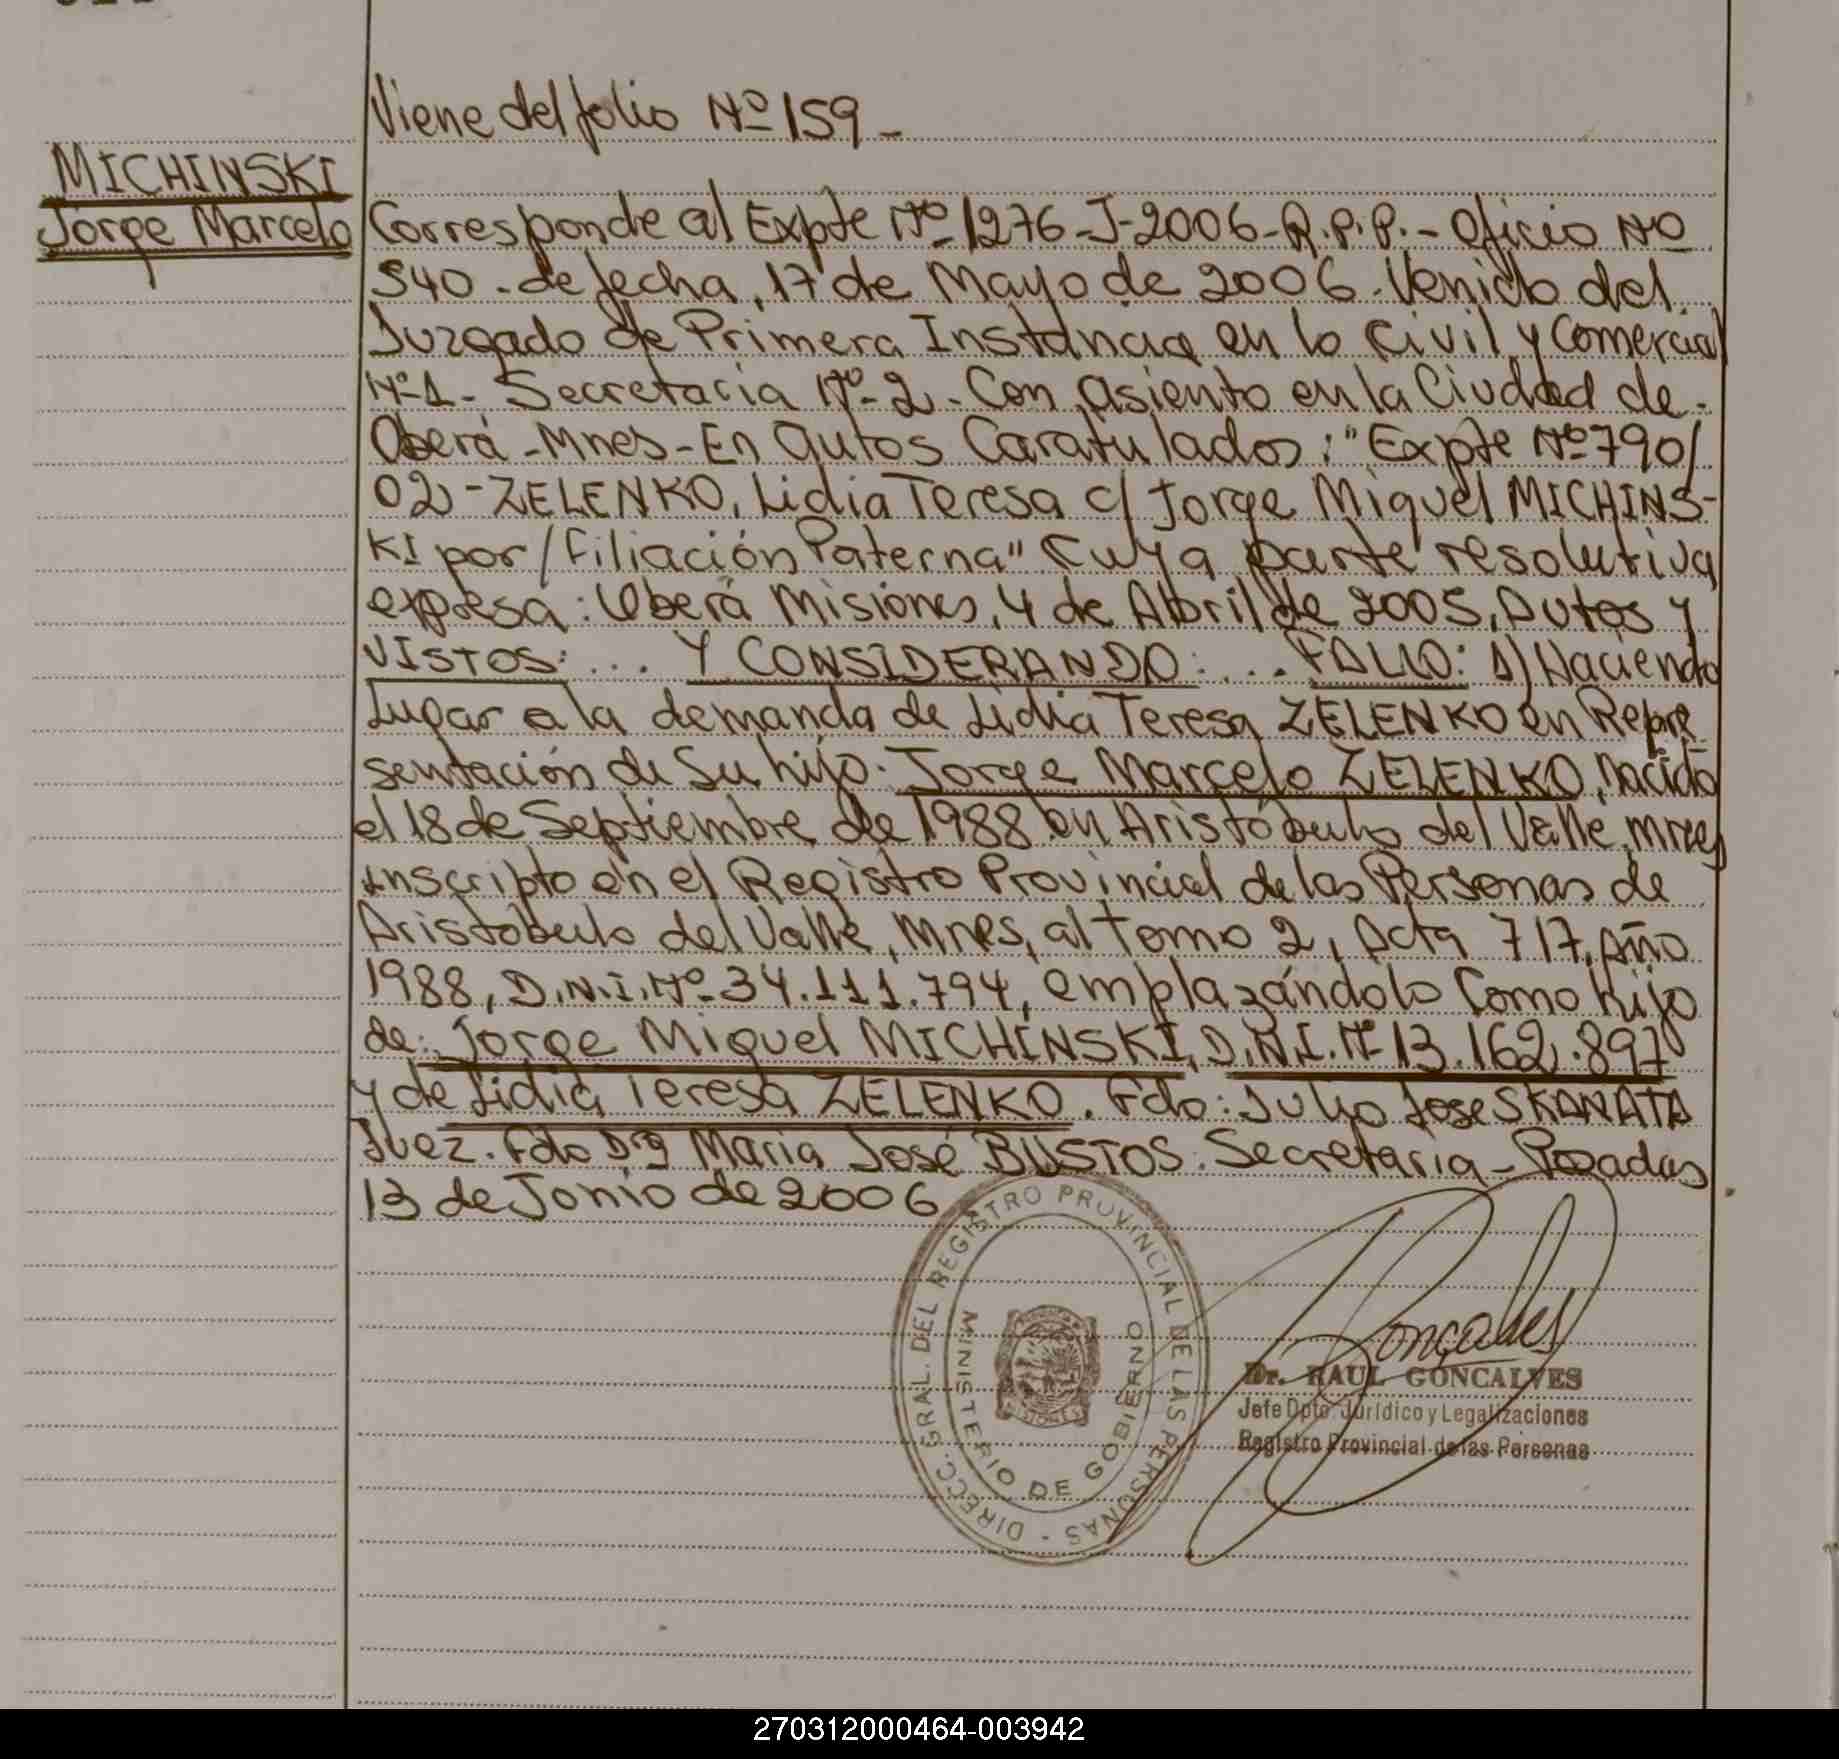 Viene del folio Nº 159 -
MICHINSKI
Jorge Marcelo
Corresponde al Expte Nº 1276-J-2006-R.P.P.- Oficio Nº
540 - de fecha, 17 de Mayo de 2006. Venido del
Juzgado de Primera Instancia en lo Civil y Comercial
Nº 1 - Secretaria Nº 2 - Con asiento en la Ciudad de -
Oberá - Mnes - En autos Caratulados: "Expte Nº 790/
02 - ZELENKO, Lidia Teresa c/ Jorge Miguel MICHINS-
KI por/ Filiación Paterna" Cuya parte resolutiva
expresa: Oberá Misiones, 4 de Abril de 2005, Autos y
VISTOS: ... Y CONSIDERANDO: ... FALLO: 1) Haciendo
Lugar a la demanda de Lidia Teresa ZELENKO en Repre
sentación de Su hijo. Jorge Marcelo ZELENKO, nacido
el 18 de Septiembre de 1988 en Aristóbulo del Valle, Mnes,
inscripto en el Registro Provincial de las Personas de
Aristóbulo del Valle, Mnes, al Tomo 2, Acta 717, Año
1988, D.N.I. Nº 34.111.794, emplazándolo Como hijo
de: Jorge Miguel MICHINSKI, D.N.I. Nº 13.162.897
y de Lidia Teresa ZELENKO. Fdo: Julio Jose SKANATA
Juez. Fdo Dra Maria José BUSTOS. Secretaria - Posadas
13 de Junio de 2006
DIRECC. GRAL. DEL REGISTRO PROVINCIAL DE LAS PERSONAS -
MINISTERIO DE GOBIERNO
MISIONES
Goncalves
Dr. RAUL GONCALVES
Jefe Dpto. Jurídico y Legalizaciones
Registro Provincial de las Personas
270312000464-003942